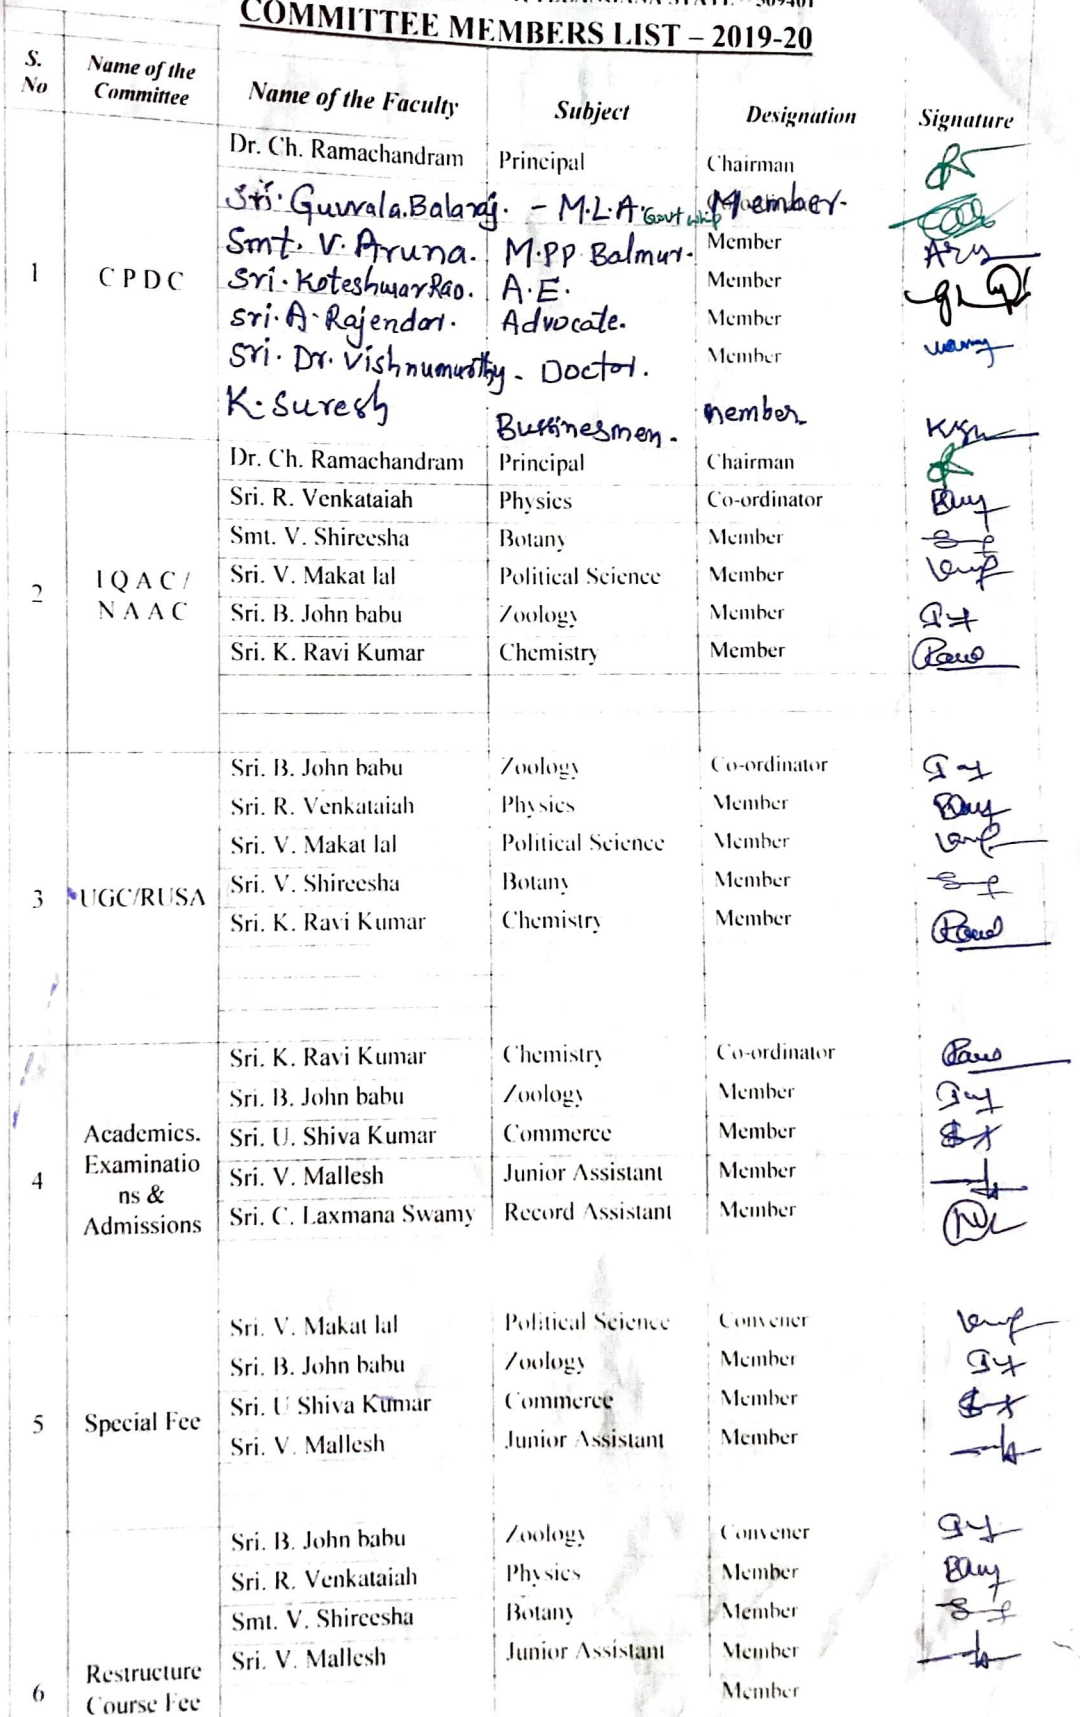 COMMITTEE MEMBERS LIST – 2019-20
S. No | Name of the Committee | Name of the Faculty | Subject | Designation | Signature
Dr. Ch. Ramachandram | Principal | Chairman
Sri. Guvvala.Balaraj. - M.L.A. Govt whip Member.
Smt. V. Aruna. M.PP Balmur. Member
1 | CPDC | Sri. KoteshwarRao. A.E. Member
Sri. A. Rajendar. Advocate. Member
Sri. Dr. Vishnumurthy - Doctor. Member
K. Suresh Bussinesmen. member
Dr. Ch. Ramachandram | Principal | Chairman
Sri. R. Venkataiah | Physics | Co-ordinator
Smt. V. Shireesha | Botany | Member
2 | IQAC/ NAAC | Sri. V. Makat lal | Political Science | Member
Sri. B. John babu | Zoology | Member
Sri. K. Ravi Kumar | Chemistry | Member
Sri. B. John babu | Zoology | Co-ordinator
Sri. R. Venkataiah | Physics | Member
Sri. V. Makat lal | Political Science | Member
3 | UGC/RUSA | Sri. V. Shireesha | Botany | Member
Sri. K. Ravi Kumar | Chemistry | Member
Sri. K. Ravi Kumar | Chemistry | Co-ordinator
Sri. B. John babu | Zoology | Member
4 | Academics. Examinatio ns & Admissions | Sri. U. Shiva Kumar | Commerce | Member
Sri. V. Mallesh | Junior Assistant | Member
Sri. C. Laxmana Swamy | Record Assistant | Member
Sri. V. Makat lal | Political Science | Convener
Sri. B. John babu | Zoology | Member
5 | Special Fee | Sri. U Shiva Kumar | Commerce | Member
Sri. V. Mallesh | Junior Assistant | Member
Sri. B. John babu | Zoology | Convener
Sri. R. Venkataiah | Physics | Member
Smt. V. Shireesha | Botany | Member
Sri. V. Mallesh | Junior Assistant | Member
6 | Restructure Course Fee | Member